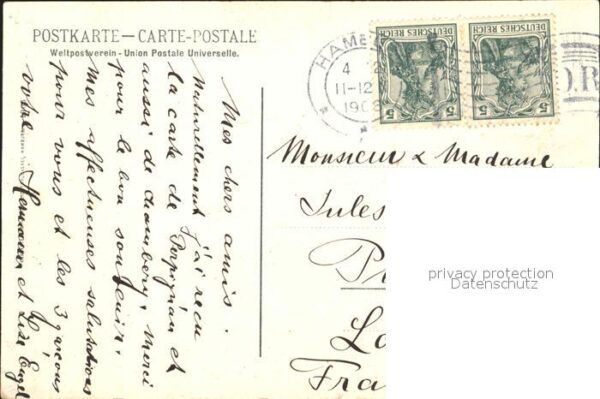 POSTKARTE — CARTE-POSTALE
Weltpostverein - Union Postale Universelle.
HAMB
4
11-12
190
DEUTSCHES REICH
5 5
DEUTSCHES REICH
5 5
Mes chers amis.
Naturellement j'ai reçu
la carte de Perpignan et
aussi de Chambery. Merci
pour le bon souvenir.
Mes affectueuses salutations
pour vous et les 3 garçons
votre
Hermann et Lise Engel
Monsieur & Madame
Jules
La
Fra
privacy protection
Datenschutz